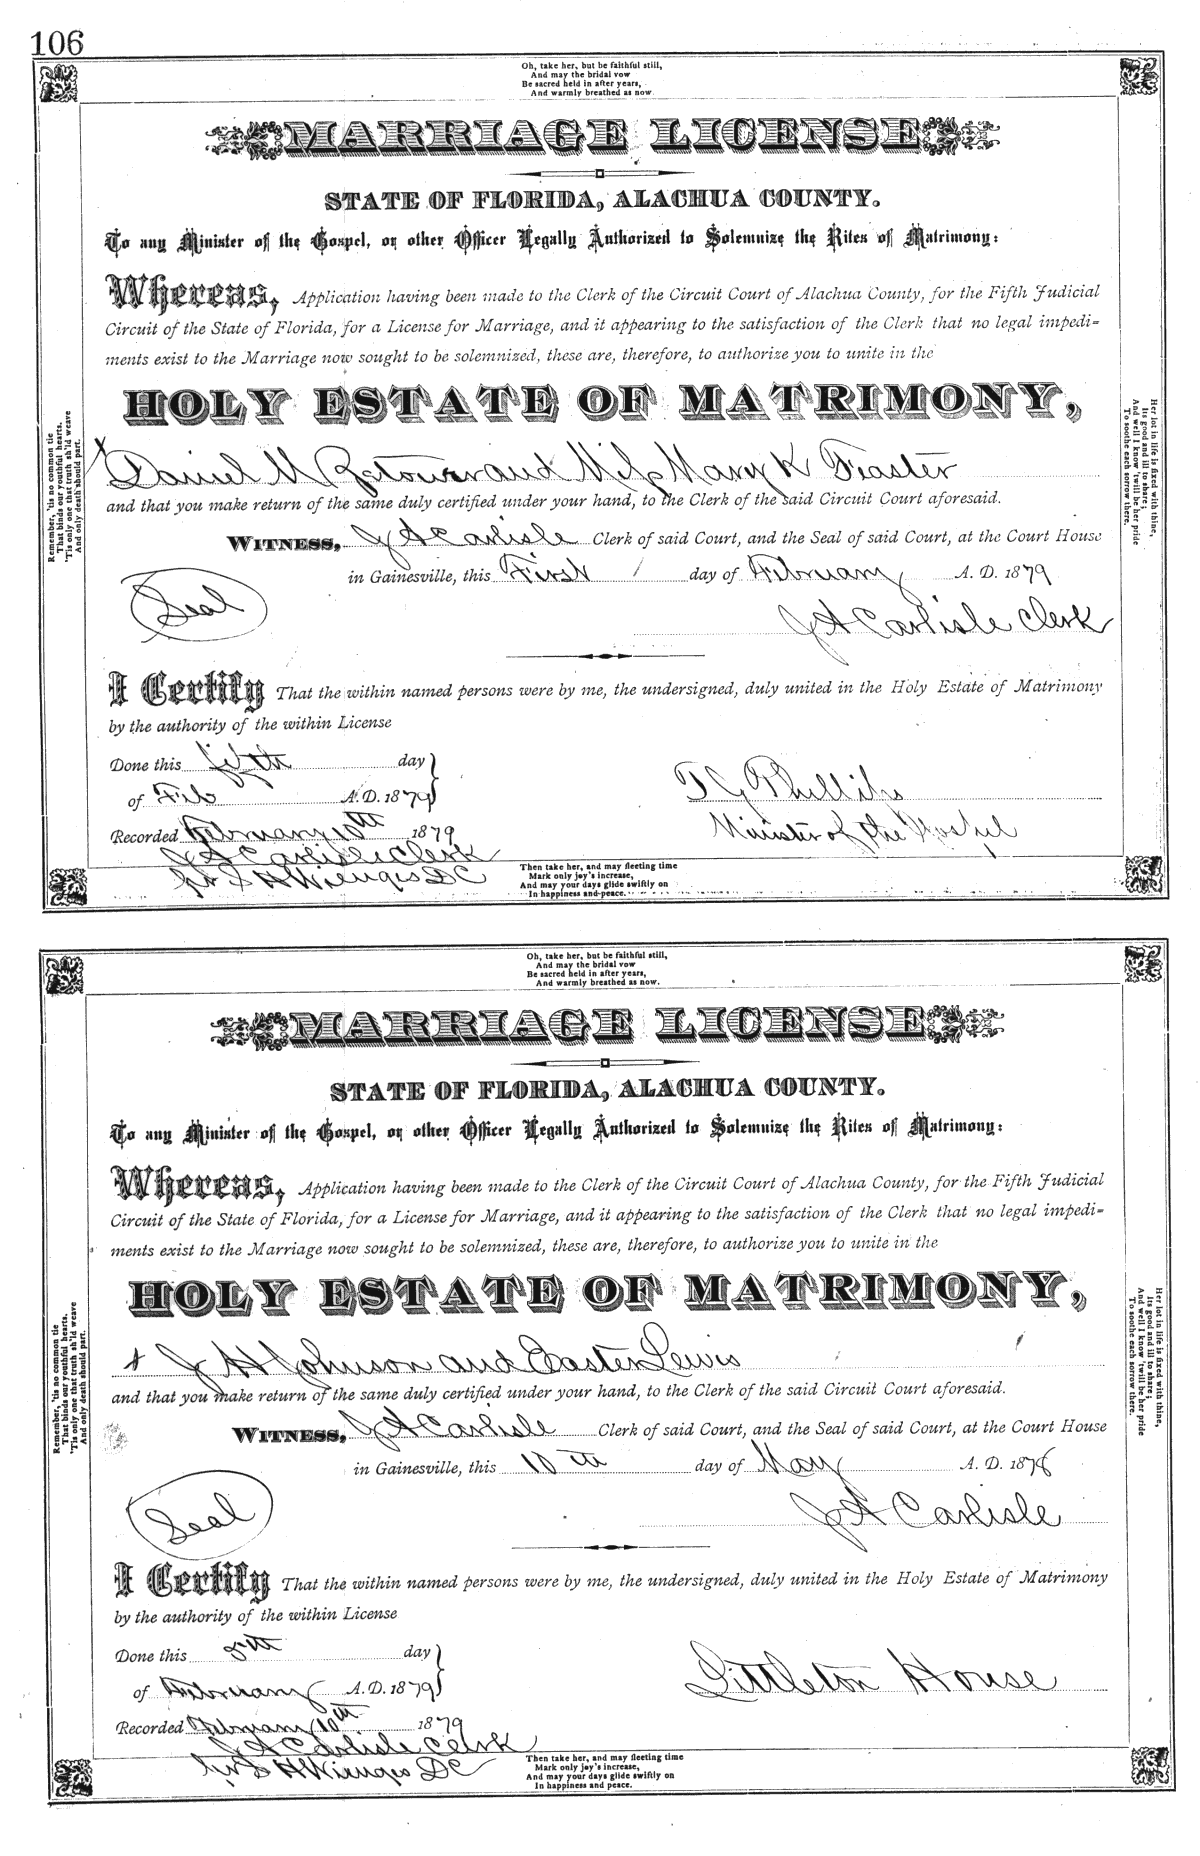 106
Oh, take her, but be faithful still,
And may the bridal vow
Be sacred held in after years,
And warmly breathed as now.
MARRIAGE LICENSE
STATE OF FLORIDA, ALACHUA COUNTY.
To any Minister of the Gospel, or other Officer Legally Authorized to Solemnize the Rites of Matrimony:
Whereas, Application having been made to the Clerk of the Circuit Court of Alachua County, for the Fifth Judicial
Circuit of the State of Florida, for a License for Marriage, and it appearing to the satisfaction of the Clerk that no legal impedi-
ments exist to the Marriage now sought to be solemnized, these are, therefore, to authorize you to unite in the
HOLY ESTATE OF MATRIMONY,
Daniel M and Miss Mary K Feaster
and that you make return of the same duly certified under your hand, to the Clerk of the said Circuit Court aforesaid.
WITNESS, J A Carlisle Clerk of said Court, and the Seal of said Court, at the Court House
in Gainesville, this First day of February A. D. 1879
Seal
J A Carlisle Clerk
I Certify That the within named persons were by me, the undersigned, duly united in the Holy Estate of Matrimony
by the authority of the within License
Done this fifth day
of Feb A. D. 1879
T G Phillips
Minister of the Gospel
Recorded February 10th 1879
J A Carlisle Clerk
S H Wienges DC
Then take her, and may fleeting time
Mark only joy's increase,
And may your days glide swiftly on
In happiness and peace.
Remember, 'tis no common tie
That binds our youthful hearts.
'Tis only one that truth sh'ld weave
And only death should part.
Her lot in life is fixed with thine,
Its good and ill to share;
And well I know 'twill be her pride
To soothe each sorrow there.
Oh, take her, but be faithful still,
And may the bridal vow
Be sacred held in after years,
And warmly breathed as now.
MARRIAGE LICENSE
STATE OF FLORIDA, ALACHUA COUNTY.
To any Minister of the Gospel, or other Officer Legally Authorized to Solemnize the Rites of Matrimony:
Whereas, Application having been made to the Clerk of the Circuit Court of Alachua County, for the Fifth Judicial
Circuit of the State of Florida, for a License for Marriage, and it appearing to the satisfaction of the Clerk that no legal impedi-
ments exist to the Marriage now sought to be solemnized, these are, therefore, to authorize you to unite in the
HOLY ESTATE OF MATRIMONY,
J H Johnson and Easter Lewis
and that you make return of the same duly certified under your hand, to the Clerk of the said Circuit Court aforesaid.
WITNESS, J A Carlisle Clerk of said Court, and the Seal of said Court, at the Court House
in Gainesville, this 10th day of May A. D. 1878
Seal
J A Carlisle
I Certify That the within named persons were by me, the undersigned, duly united in the Holy Estate of Matrimony
by the authority of the within License
Done this 8th day
of February A. D. 1879
Littleton House
Recorded February 10th 1879
J A Carlisle Clerk
S H Wienges DC
Then take her, and may fleeting time
Mark only joy's increase,
And may your days glide swiftly on
In happiness and peace.
Remember, 'tis no common tie
That binds our youthful hearts.
'Tis only one that truth sh'ld weave
And only death should part.
Her lot in life is fixed with thine,
Its good and ill to share;
And well I know 'twill be her pride
To soothe each sorrow there.